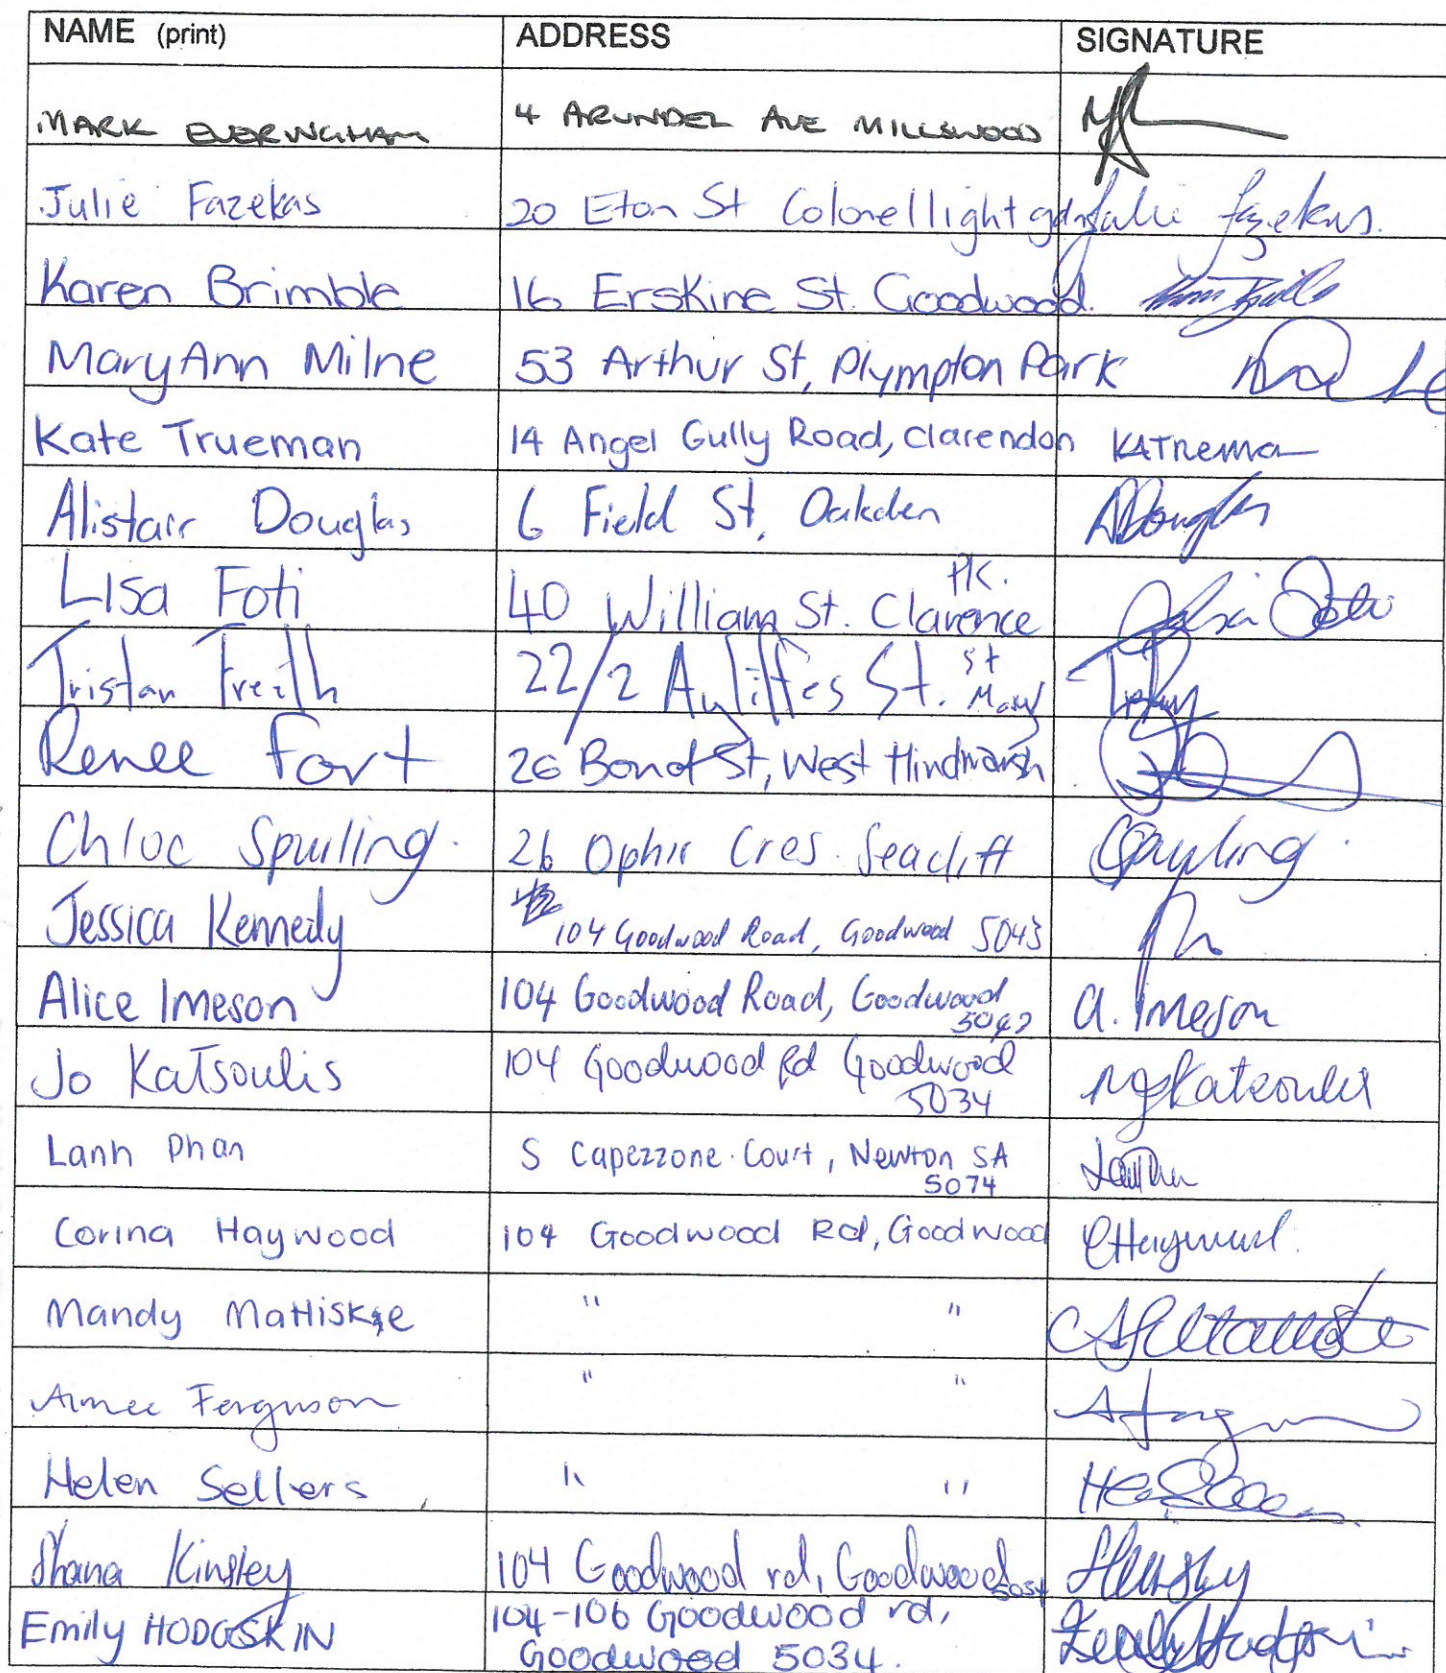 NAME (print) ADDRESS SIGNATURE
MARK EVERINGHAM 4 ARUNDEL AVE MILLSWOOD
Julie Fazekas 20 Eton St Colonellight gdns Julie Fazekas.
Karen Brimble 16 Erskine St. Goodwood.
MaryAnn Milne 53 Arthur St, Plympton Park
Kate Trueman 14 Angel Gully Road, Clarendon KATruema
Alistair Douglas 6 Field St, Oakden ADouglas
PK.
Lisa Foti 40 William St. Clarence Lisa Foti
Tristan Freith 22/2 Ayliffes St. St
Mary
Renee Fort 26 Bond St, West Hindmarsh
Chloe Spurling. 26 Ophir Cres. Seacliff CSpurling.
Jessica Kennedy 104 Goodwood Road, Goodwood 5043
Alice Imeson 104 Goodwood Road, Goodwood A. Imeson
Jo Katsoulis 104 Goodwood Rd Goodwood Katsoulis
5034
Lanh Phan 5 Capezzone Court, Newton SA
5074
Corina Haywood 104 Goodwood Rd, Goodwood CHaywood.
Mandy Mattiske " "
Aimee Ferguson " "
Helen Sellers " "
Shana Kinsley 104 Goodwood rd, Goodwood 5034
Emily HODGSKIN 104-106 Goodwood rd,
Goodwood 5034.